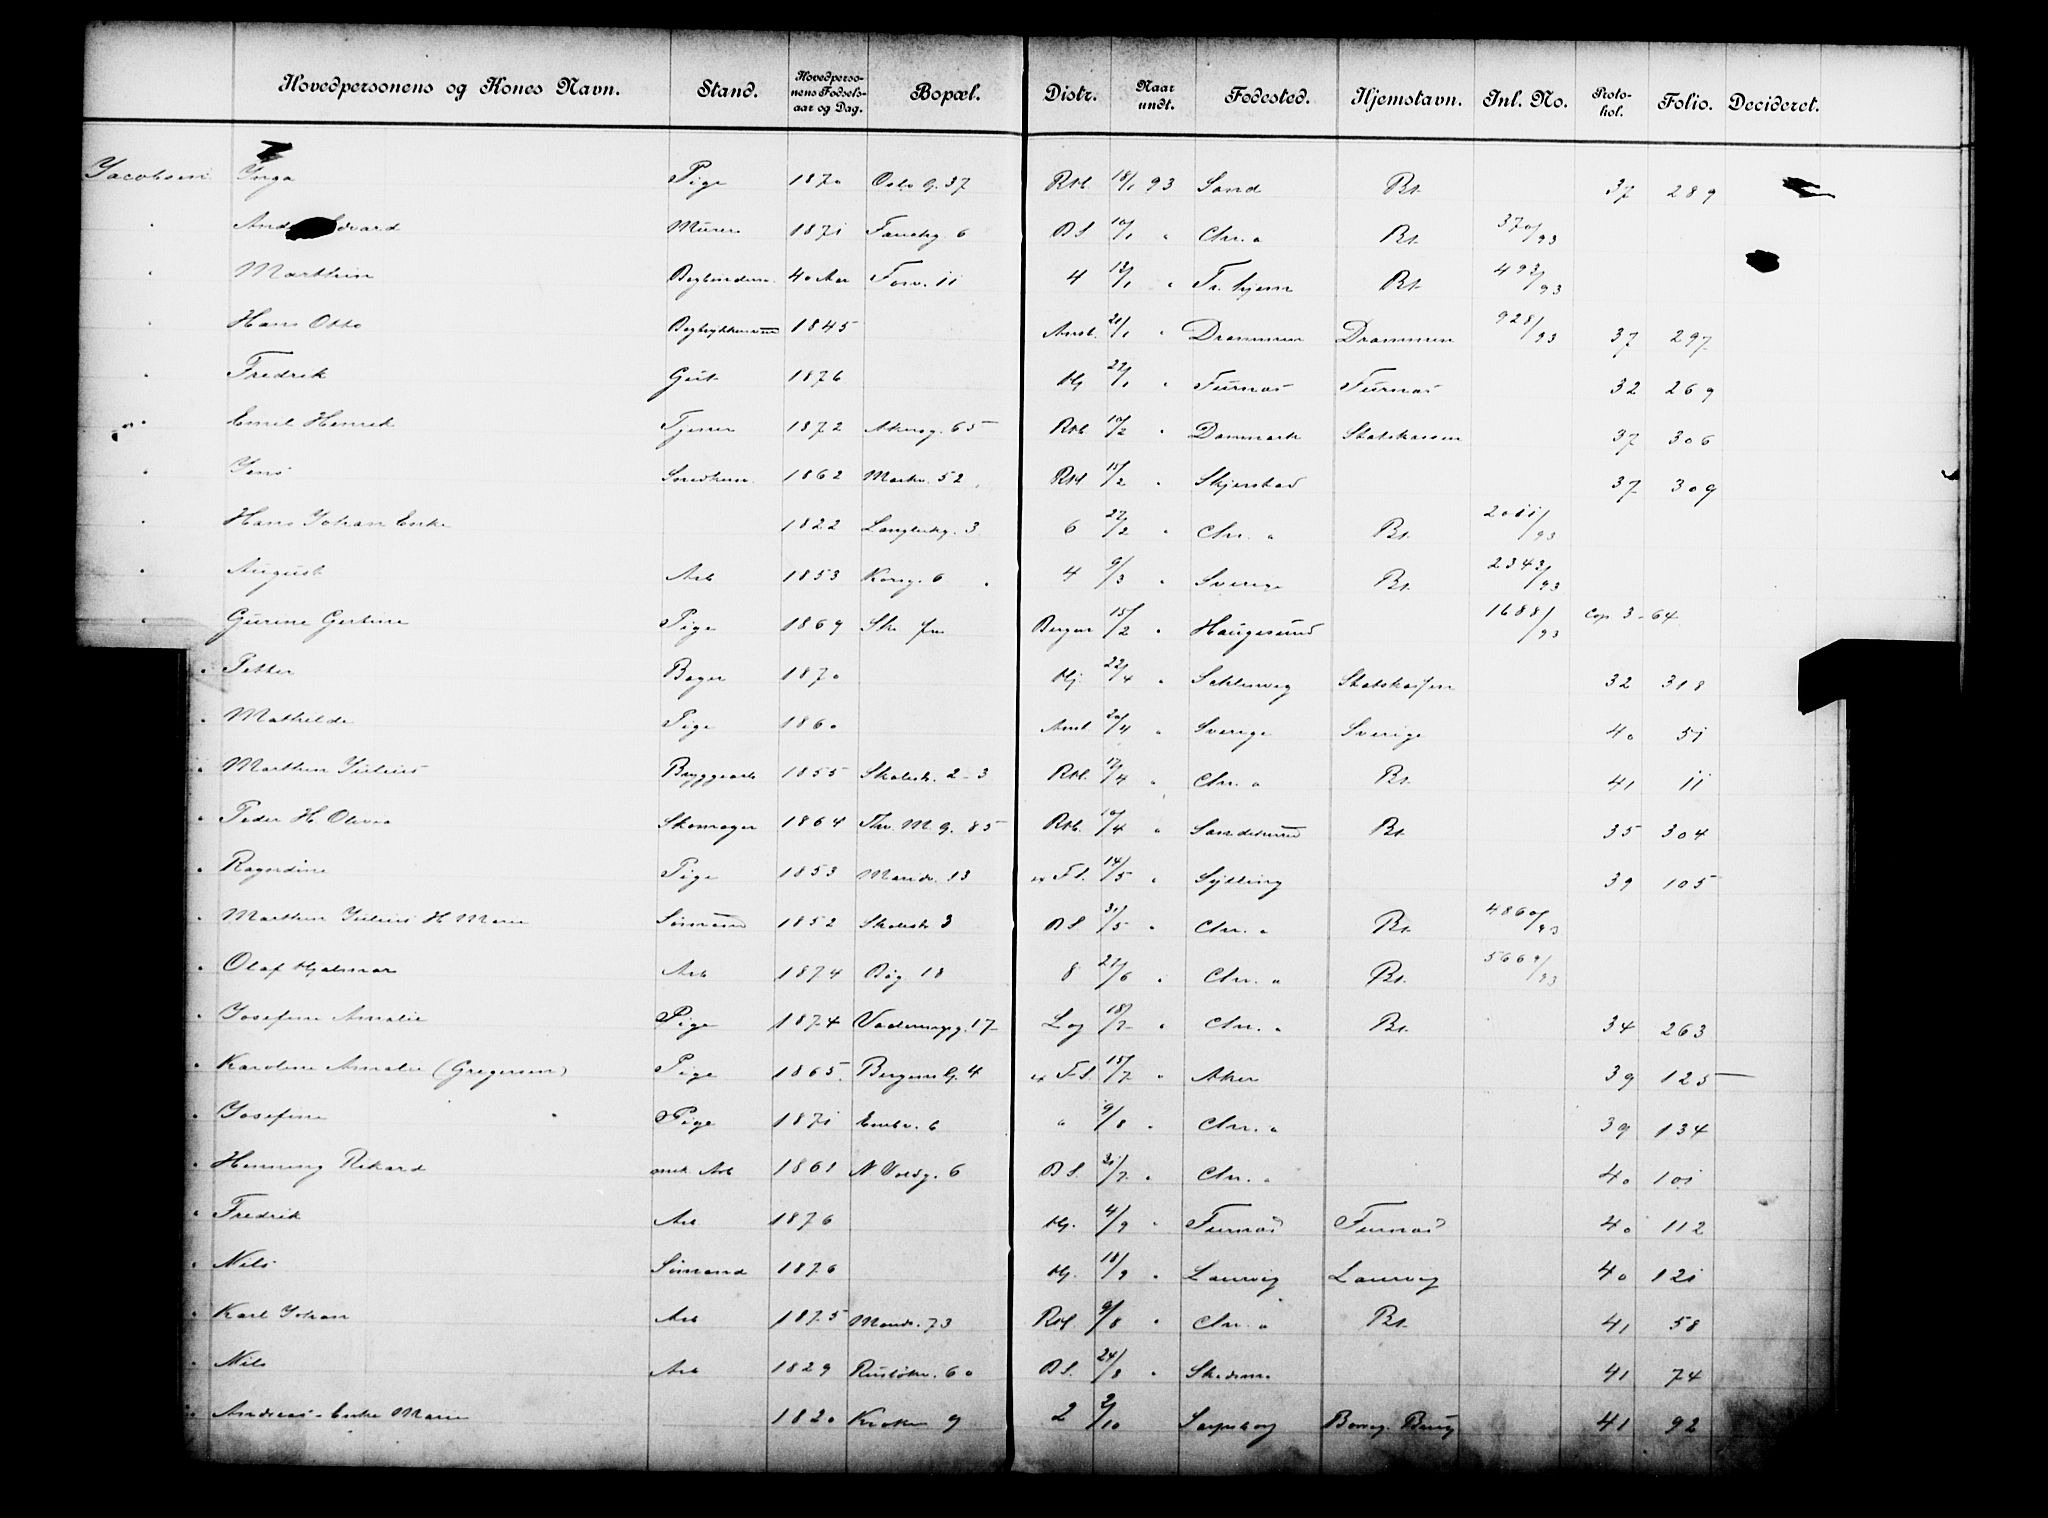 Hovedpersonens og Kones Navn. Stand. Hovedperso-nens Fødsels-aar og Dag. Bopæl. Distr. Naar undt. Fødested. Hjemstavn. Inl. No. Proto-kol. Folio. Decideret.
Jacobsen Inga Pige 1870 Oslo G. 37 Rst. 18/1 93 Sand Bt. 37 289
" Edvard Murer 1871 6 BS 10/1 " Chr.a Bt. 370/93
" Marthin 40 Aar Torv. 11 4 12/1 " Tr.hjem Bt. 493/93
" Hans Otto 1845 21/1 " Drammen Drammen 928/93 37 297
" Fredrik Gut 1876 Hj 22/1 " Furnæs Furnæs 32 269
" Emil Henrik Tjener 1872 Akersg. 65 Rst 10/2 " Danmark Statskassen 37 306
" Jens 1862 Markv. 52 Rst 15/2 " Skjerstad 37 309
" Hans Johan Enke 1822 3 6 27/2 " Chr.a Bt. 2011/93
" August Arb 1853 Korsg. 6 4 9/3 " Sverige Bt. 2343/93
" Gurine Gurine Pige 1869 Bergen 15/2 " Haugesund 1688/93 Cop 3-64
" Petter Bager 1870 Hj. 22/4 " Schleswig Statskassen 32 318
" Mathilde Pige 1860 20/4 " Sverige Sverige 40 51
" Marthin Julius Bryggearb 1855 Skolest. 2-3 Rst. 12/4 " Chr.a Bt. 41 11
" Peder H. Oliva Skomager 1864 Thv. M. G. 85 Rst. 10/4 " Bt. 35 304
" Ragndine Pige 1853 Maridv. 13 Fl. 14/5 " Sylling 39 105
" Marthin Julius H. Marie Sømand 1852 Skolest 3 BS 31/5 " Chr.a Bt. 4860/93
" Olaf Hjalmar Arb 1874 Bøg. 18 8 21/6 " Chr.a Bt. 5669/93
" Josefine Amalie Pige 1874 17 Log 18/7 " Chr.a Bt. 34 263
" Karoline Amalie (Gregersen) Pige 1865 Bergens G. 4 Fl. 18/7 " Aker 39 125
" Josefine Pige 1871 6 " 9/8 " Chr.a 39 134
" Henning Rikard mek Arb 1868 N Voldg. 6 BS. 31/7 " Chr.a 40 101
" Fredrik Arb 1876 Hj. 4/9 " Furnæs Furnæs 40 112
" Nils Sømand 1876 Hj. 18/9 " Laurvig Laurvig 40 121
" Karl Johan Arb 1875 Maridv. 73 Rst. 9/8 " Chr.a Bt. 41 58
" Nils Arb 1829 Ruseløkv. 60 BS. 24/8 " Skedsmo 41 74
" Andreas - Enke Marie 1820 9 2 2/10 Sarpsborg 41 92